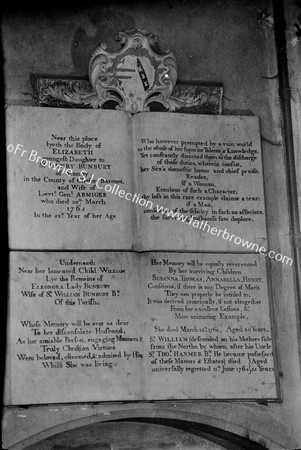 Near this place
lyeth the Body of
ELIZABETH
youngest Daughter to
HENRY BUNBURY
in the County of Baronet,
and Wife of
Lieut. Gen. ARMIGER
who died 20 March
1762
In the 22 Year of her Age
Who however prompted by a vain world
to the abuse of her superior Talents & Knowledge,
Yet constantly directed them to the discharge
of those duties, wherein consist,
her Sex's distinctive honor and chief praise.
Reader,
If a Woman,
Emulous of such a Character,
in this rare example claime a tear:
if a Man,
the felicity in such an associate,
the fate deplore.
Underneath
Near her lamented Child WILLIAM
Lye the Remains of
ELEONORA Lady BUNBURY
Wife of Sr WILLIAM BUNBURY Bt
Of this Parish.
Whose Memory will be ever as dear
To her disconsolate Husband,
As her amiable Person, engaging Manners &
Truly Christian Virtues
Were beloved, esteemed, & admired by Him
Whilst She was living.
Her Memory will be equally reverenced
By her surviving Children,
SUSANNA, THOMAS, ANNABELLA, HENRY,
Conscious, if there is any Degree of Merit
They can properly be intitled to,
It was derived principally, if not altogether
From her excellent Lessons, &
More animating Example,
She died March 1762, Aged Years,
Sr WILLIAM (descended on his Mothers side
from the Norths, by whom, after his Uncle
Sr THOs HANMER Bt He became possessed
of these Manors & Estates) died Aged
universally regretted 11 June 1764 Years
© Fr Browne S.J. Collection www.fatherbrowne.com